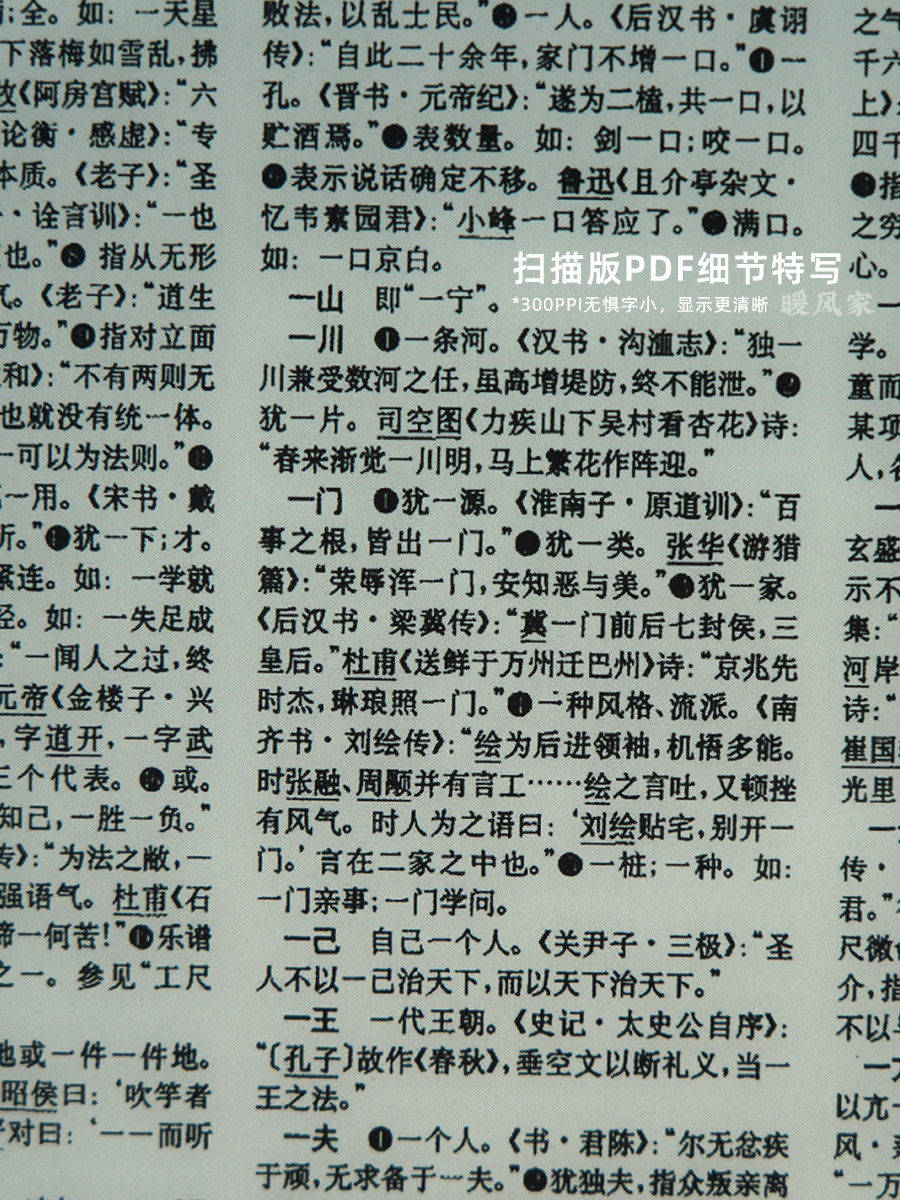 满;全。如:一天星
下落梅如雪乱,拂
《阿房宫赋》:“六
论衡·感虚》:“专
本质。《老子》:“圣
·诠言训》:“一也
也。”❽指从无形
气。《老子》:“道生
万物。”指对立面
和》:“不有两则无
也就没有统一体。
一可以为法则。”
一用。《宋书·戴
听。”犹一下;才。
紧连。如:一学就
经。如:一失足成
:“一闻人之过,终
元帝《金楼子·兴
,字道开,一字武
三个代表。或。
知己,一胜一负。”
传》:“为法之敝,一
强语气。杜甫《石
啼一何苦!”乐谱
之一。参见“工尺
地或一件一件地。
昭侯曰:‘吹竽者
对曰:‘一一而听
败法,以乱士民。”一人。《后汉书·虞诩
传》:“自此二十余年,家门不增一口。”一
孔。《晋书·元帝纪》:“遂为二榼,共一口,以
贮酒焉。”表数量。如:剑一口;咬一口。
表示说话确定不移。鲁迅《且介亭杂文·
忆韦素园君》:“小峰一口答应了。”满口。
如:一口京白。
一山 即“一宁”。
一川 ❶一条河。《汉书·沟洫志》:“独一
川兼受数河之任,虽高增堤防,终不能泄。”❷
犹一片。司空图《力疾山下吴村看杏花》诗:
“春来渐觉一川明,马上繁花作阵迎。”
一门 ❶犹一源。《淮南子·原道训》:“百
事之根,皆出一门。”❷犹一类。张华《游猎
篇》:“荣辱浑一门,安知恶与美。”❸犹一家。
《后汉书·梁冀传》:“冀一门前后七封侯,三
皇后。”杜甫《送鲜于万州迁巴州》诗:“京兆先
时杰,琳琅照一门。”❹一种风格、流派。《南
齐书·刘绘传》:“绘为后进领袖,机悟多能。
时张融、周颙并有言工……绘之言吐,又顿挫
有风气。时人为之语曰:‘刘绘贴宅,别开一
门。’言在二家之中也。”❺一桩;一种。如:
一门亲事;一门学问。
一己 自己一个人。《关尹子·三极》:“圣
人不以一己治天下,而以天下治天下。”
一王 一代王朝。《史记·太史公自序》:
“〔孔子〕故作《春秋》,垂空文以断礼义,当一
王之法。”
一夫 ❶一个人。《书·君陈》:“尔无忿疾
于顽,无求备于一夫。”❷犹独夫,指众叛亲离
扫描版PDF细节特写
*300PPI无惧字小,显示更清晰 暖风家
之气
千六
上》
四千
指
之穷
心。
一
学。
童而
某项
人,各
一
玄盛
示不
集:“
河岸
诗:“
崔国
光里
一
传·
君。”
尺微
介,指
不以
一
以亢
风·
“一万